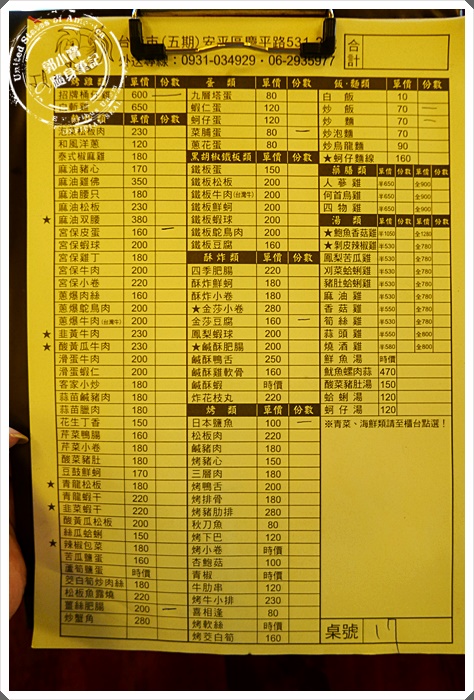 市(五期)安平區慶平路531
專線:0931-034929・06-2935977
合計
雞類 單價 份數
招牌桶仔雞 600 一
白斬雞 650
單價 份數
泡菜松板肉 230
和風洋蔥 120
泰式椒麻雞 180
麻油豬心 170
麻油雞佛 350
麻油腰只 180
麻油松板 230
★ 麻油双腰 380
宮保皮蛋 160 一
宮保蝦球 200
宮保雞丁 180
宮保牛肉 200
宮保小卷 220
蔥爆肉絲 160
蔥爆鴕鳥肉 200
蔥爆牛肉(台灣牛) 200
★ 韭黃牛肉 230
★ 酸黃瓜牛肉 230
滑蛋牛肉 200
滑蛋蝦仁 180
客家小炒 180
蒜苗鹹豬肉 180
蒜苗臘肉 180
花生丁香 150
芹菜鴨腸 160
芹菜小卷 180
酸菜豬肚 180
豆鼓鮮蚵 170
★ 青龍松板 220
青龍蝦干 220
★ 韭菜蝦干 220
酸黃瓜松板 200
絲瓜蛤蜊 150
★ 辣椒包菜 180
苦瓜鹽蛋 160
蘆筍鹽蛋 時價
茭白筍炒肉絲 180
松板魚露燒 220
薑絲肥腸 200 一
炒蟹角 280
蛋類 單價 份數
九層塔蛋 80
蝦仁蛋 120
蚵仔蛋 120
菜脯蛋 80 一
蔥花蛋 80
黑胡椒鐵板類 單價 份數
鐵板蛋 150
鐵板松板 200
鐵板牛肉(台灣牛) 200
鐵板鮮蚵 200
鐵板蝦球 200
鐵板鴕鳥肉 200
鐵板豆腐 160
酥炸類 單價 份數
四季肥腸 220
酥炸鮮蚵 180
酥炸小卷 180
★金莎小卷 280
金莎豆腐 160 一
鳳梨蝦球 200
★鹹酥肥腸 200
鹹酥鴨舌 250
鹹酥雞軟骨 160
鹹酥蝦 時價
炸花枝丸 220
烤類 單價 份數
日本鹽魚 100 一
松板肉 220
鹹豬肉 180
烤豬心 150
三層肉 180
烤鴨舌 200
烤排骨 180
烤豬肋排 280
秋刀魚 80
烤下巴 120
烤小卷 時價
杏鮑菇 100
青椒 時價
牛肋串 120
烤牛小排 230
喜相逢 80
烤軟絲 時價
烤茭白筍 160
飯・麵類 單價 份數
白飯 10
炒飯 70 一
炒麵 70 一
炒泡麵 70
炒烏龍麵 90
★蚵仔麵線 160
藥膳類 單價 份數 單價 份數
人蔘雞 半650 全900
何首烏雞 半650 全900
四物雞 半650 全900
湯類 單價 份數 單價 份數
★鮑魚香菇雞 半1050 全1280
★剝皮辣椒雞 半530 全780
鳳梨苦瓜雞 半530 全780
刈菜蛤蜊雞 半530 全780
豬肚蛤蜊雞 半530 全780
麻油雞 半530 全780
香菇雞 半550 全780
筍絲雞 半530 全780
蒜頭雞 半550 全800
燒酒雞 半580 全800
鮮魚湯 時價
魷魚螺肉蒜 470
酸菜豬肚湯 150
蛤蜊湯 120
蚵仔湯 120
※青菜、海鮮類請至櫃台點選!
桌號 17
United States of America
郭小寶
隨棠筆記